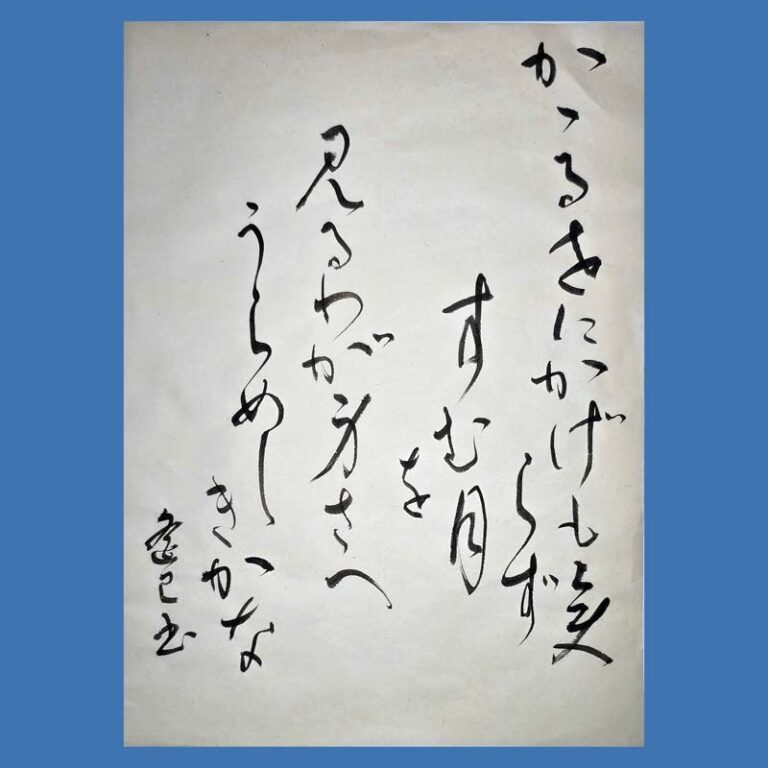 かゝる世にかげも変
らず
すむ月
を
見るわが身さへ
うらめし
きかな